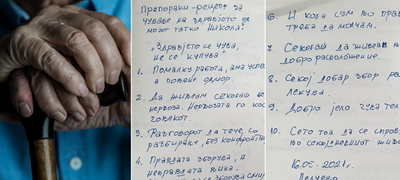 Препораки-рецепт за
чување на здравјето од
мојот татко Никола:
„Здравјето се чува,
не се купува"
1. Помалку работа, ама
а повеќе одмор.
2. Да живеам секогаш бе
нервоза. Нервозата го
човекот.
3. Разговорот да тече со
разбирање, без
4. Правдата зборува, а
неправдата вика.
6. И кога сум во
треба да молчам.
7. Секогаш да живеам
добро расположение.
8. Секој добар збор
лекува.
9. Добро јело чува
10. Сето тоа да се
во секојдневниот
16.05.2021г.